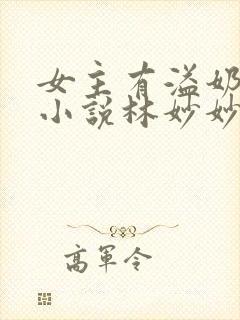 女主有溢奶
小說林妙妙
高軍令